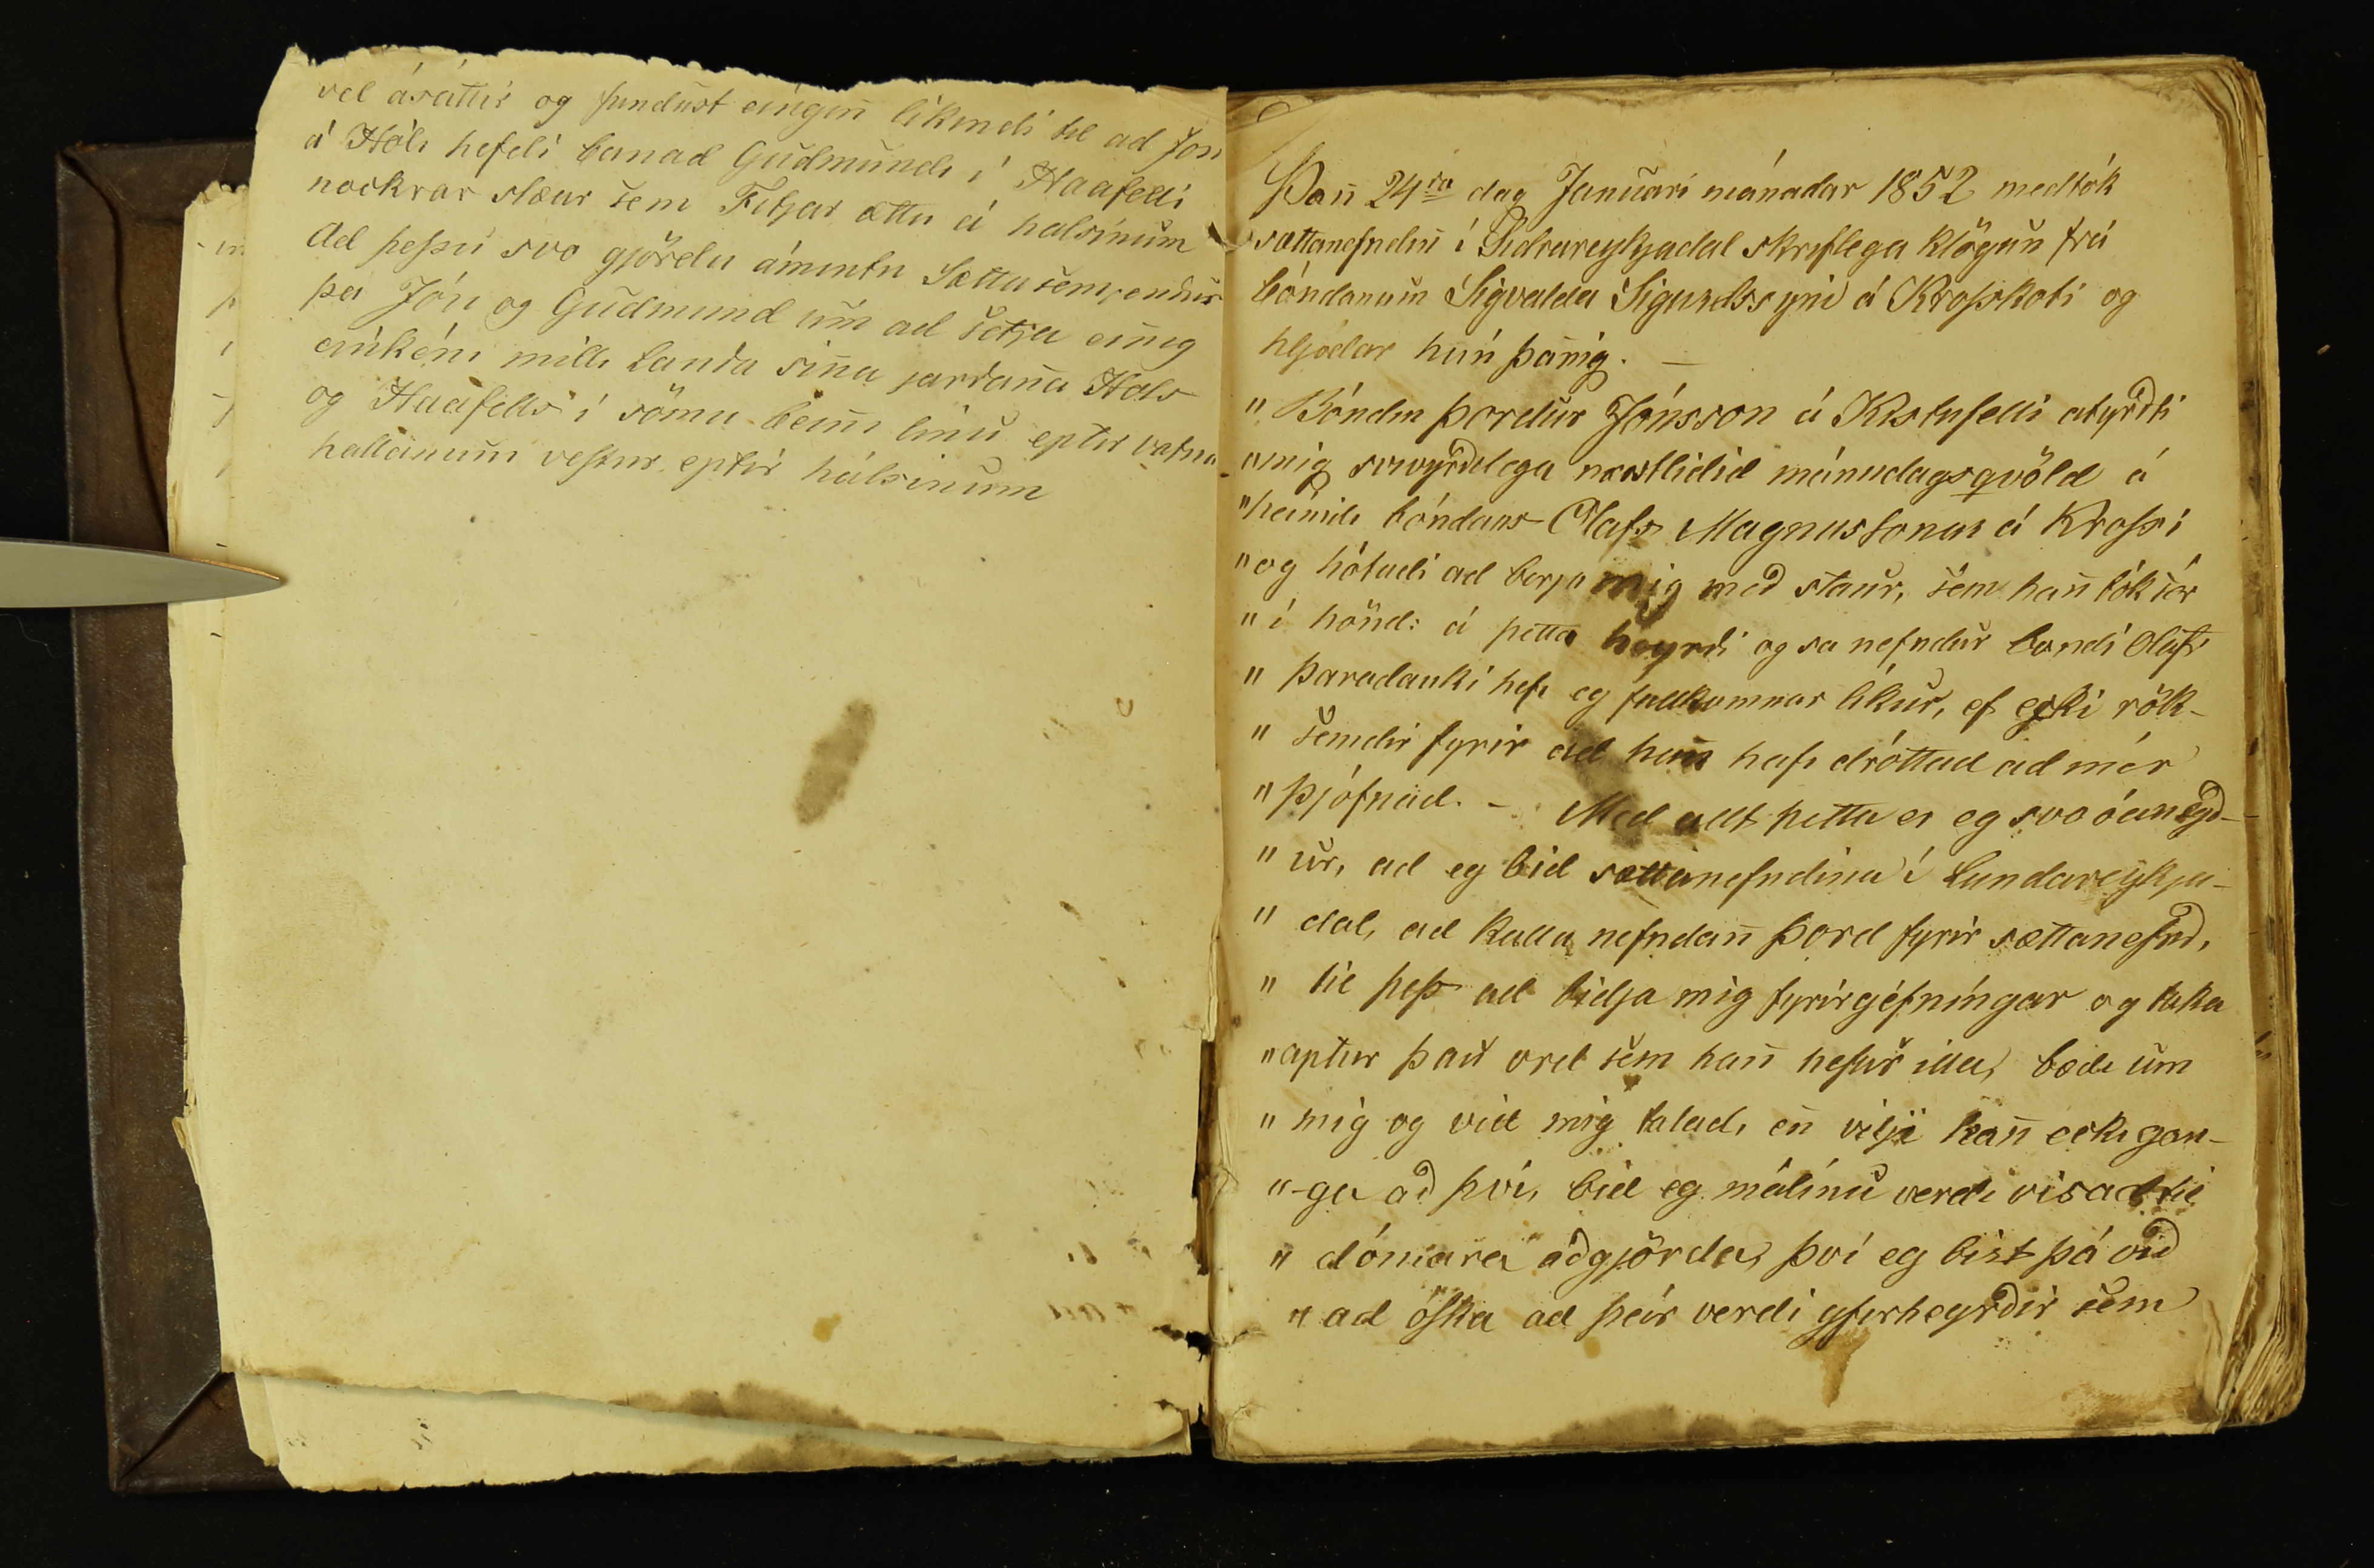 vel ásáttir og fundust eingin̄ likindi til ad Jón
á Hóli hefdi banad Gudmundi í Haafelli
nockrar slæur sem Fitjar ættu á halsinum
Ad þessu svo gjördu ámintu Sættasemjendur
þa Jón og Gudmund um ad setja ein̄ig
einkéni milli Landa sin̄a jardan̄a Hols
og Haafells í sömu bein̄i linu eptir vatna
hallanum vestur eptir hálsinum
Þan̄ 24da dag Januari mánadar 1852 medtók
sættanefndin̄ í Sydrareykjadal skriflega klögun frá
bóndanum Sigvalda Sigurdssyni á Krosskoti og
hljódar hún þan̄ig. —
" Bóndin Þordur Jónsson á Kistufelli atyrdti
" mig svivyrdilega næstlidid mánudagsqvöld á
" heimili bóndans Olafs Magnussonar á Krossi
" og hótadi ad berja mig með staur, sem han̄ tók sér
" í hönd: á þetta heyrdi og sa nefndur bondi Olafr
" Þaradauki hefi eg fullkomnar líkur, ef ecki rök-
" semdir fyrir ad han̄ hafi dróttad ad mér
" Þjófnad. - Med allt þetta er eg svo óánægd-
" ur, ad eg bid sættanefndina í Lundareykja-
" dal, ad kalla nefndan̄ Þord fyrir sættanefnd,
" til þess ad bidja mig fyrirgéfníngar og taka
" aptur þau ord sem han̄ hefur illa, bædi um
" mig og vid mig talad, en̄ vilji han̄ ecki gan-
" -ga að því, bid eg málinu verdi visad til
" dómara aðgjörda, því eg bist þá við
" ad óska ad þeir verdi yfirheyrðir sem